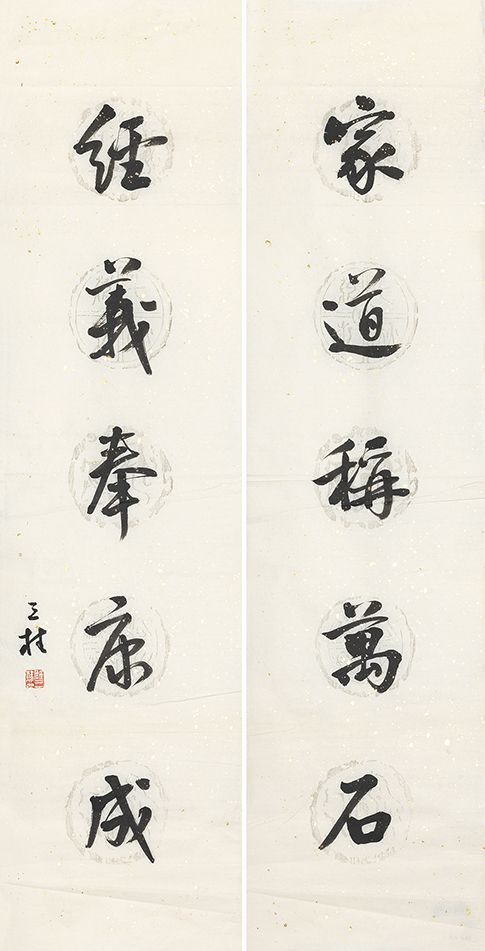 家道稱萬石
經義奉康成
三桂